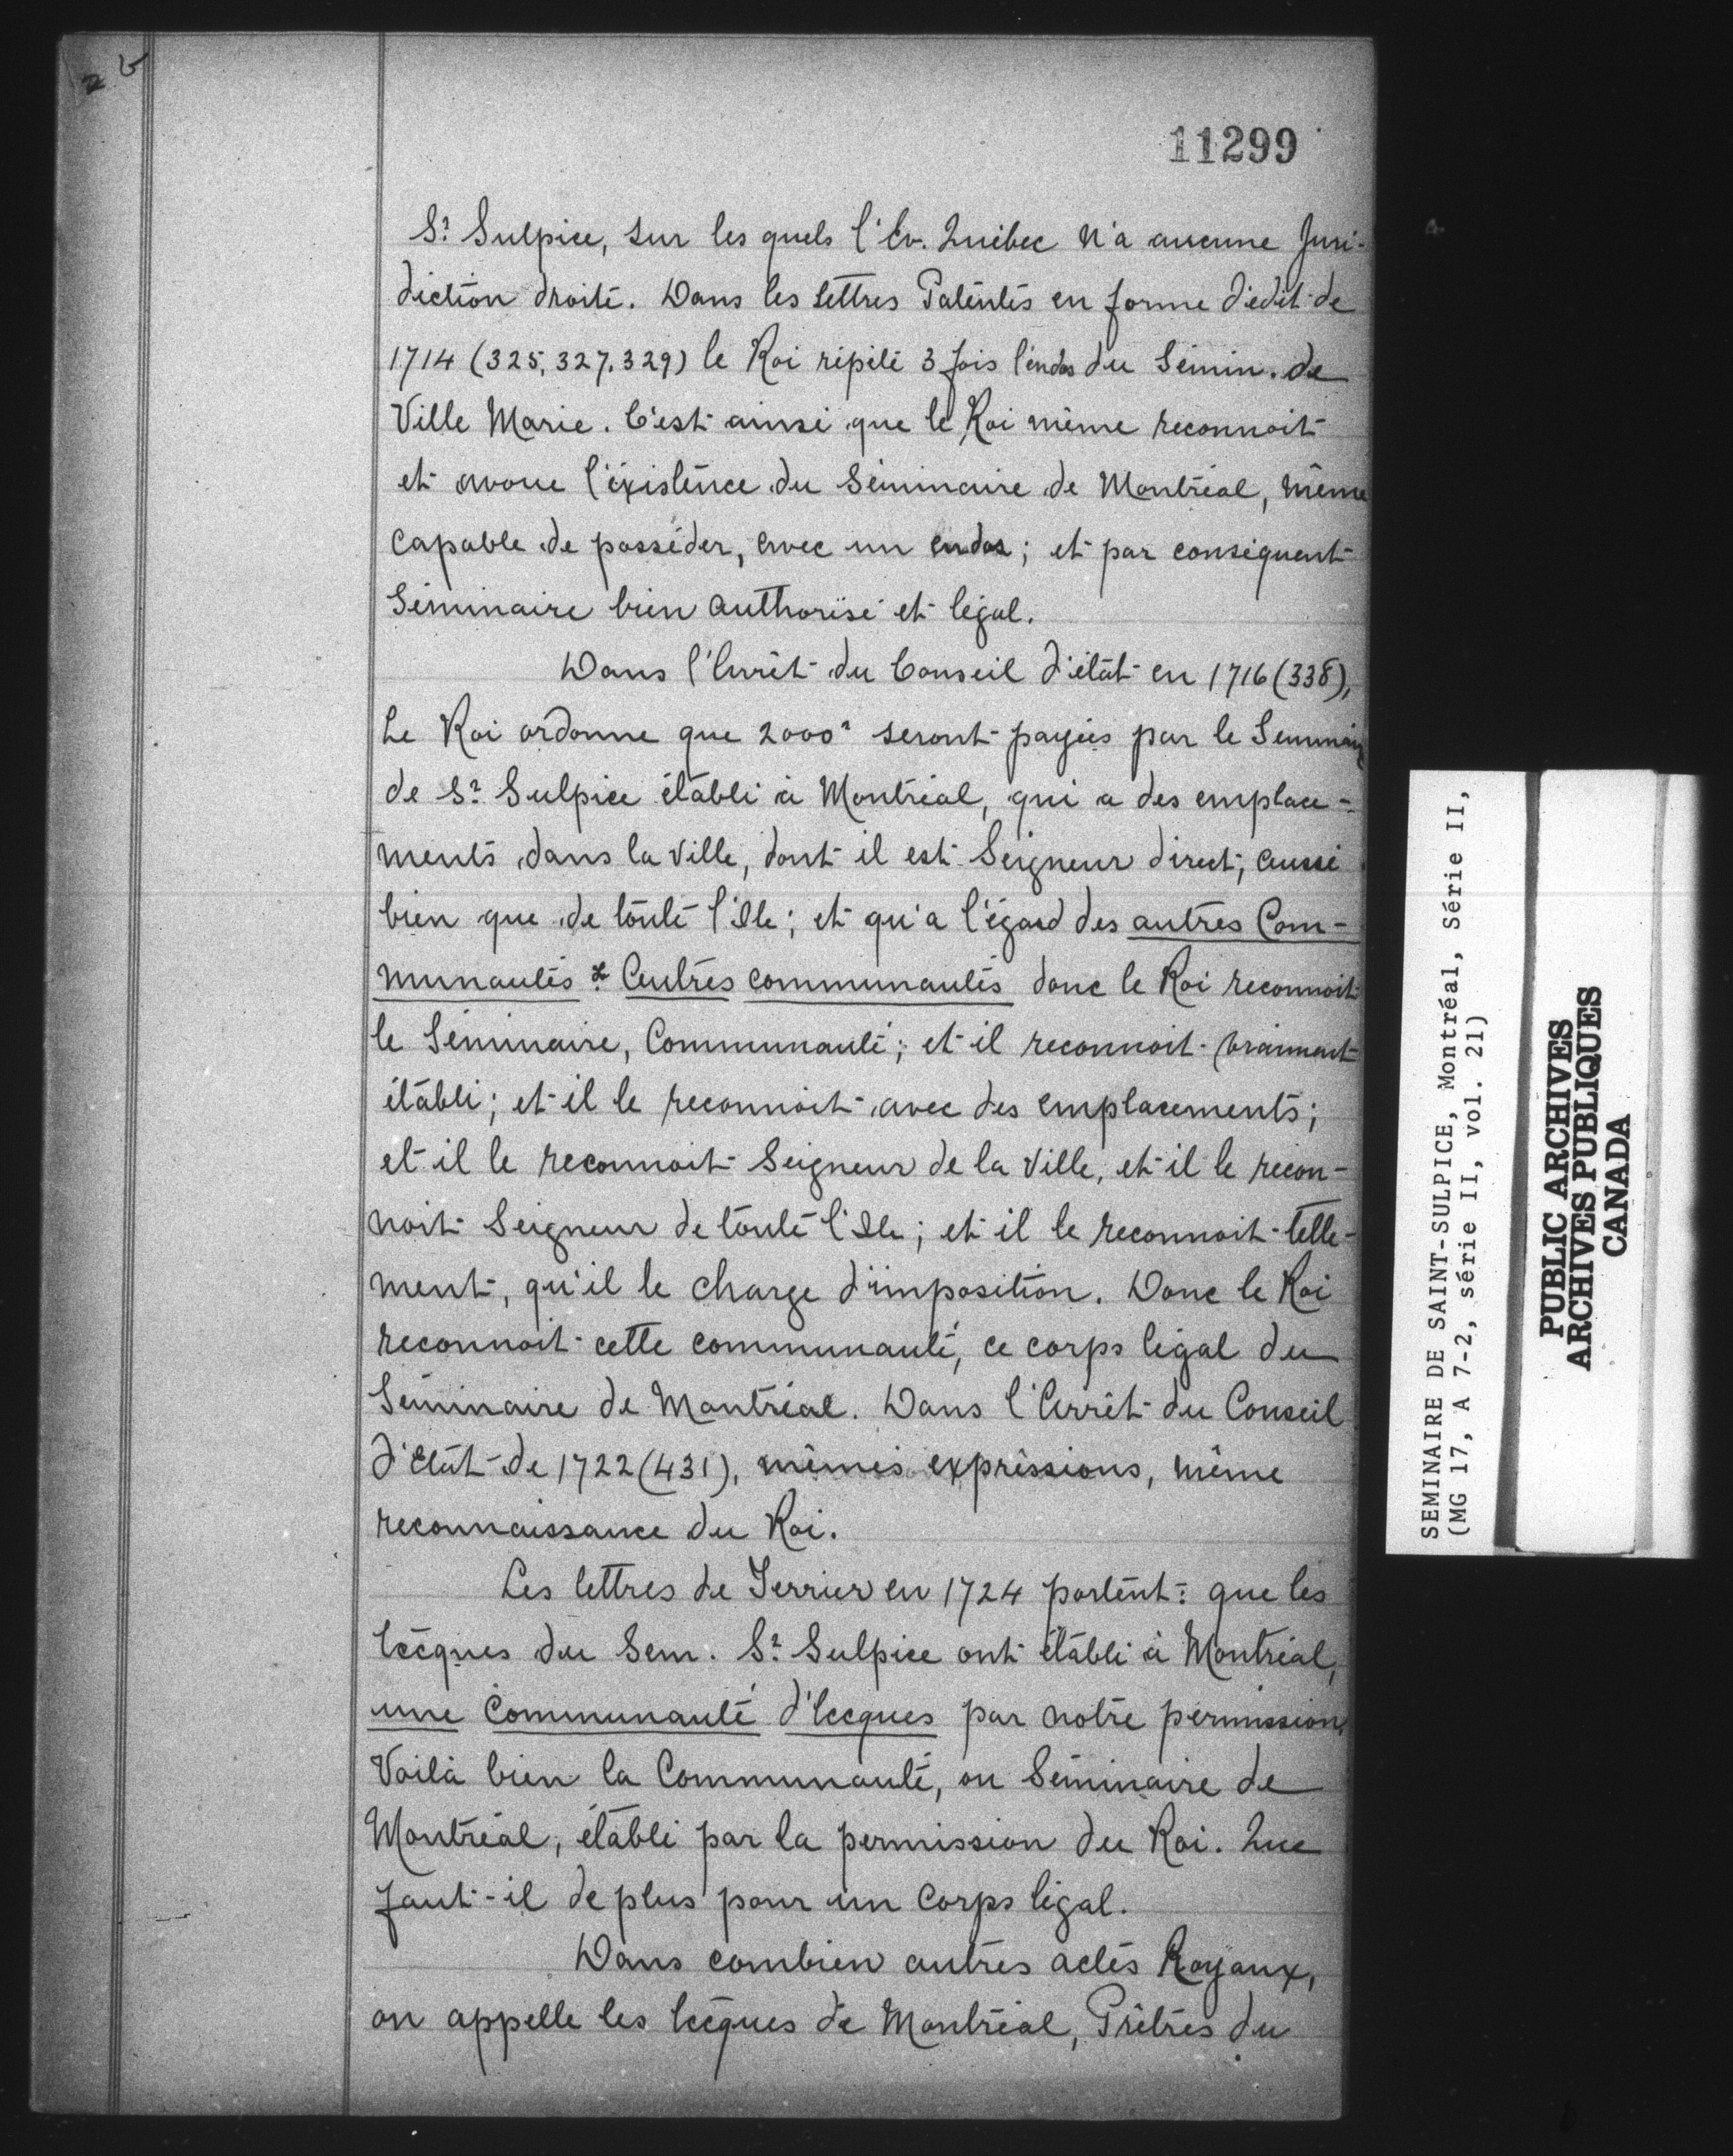 11299
St Sulpice, sur les quels l'Ev. Québec n'a aucune Juri-
diction droite. Dans les lettres Patentes en forme d'édit de
1714 (325, 327, 329) le Roi répète 3 fois l'endos du Sémin. de
Ville Marie. C'est ainsi que le Roi même reconnoit
et avoue l'éxistence du Séminaire de Montréal, même
capable de posséder, avec un endos; et par conséquent
Séminaire bien authorisé et légal.
Dans l'Arrêt du Conseil d'état en 1716 (338),
Le Roi ordonne que 2000 seront payées par le Seminaire
de St Sulpice établi à Montréal, qui a des emplace-
ments dans la ville, dont il est Seigneur direct; aussi
bien que de toute l'Isle; et qu'a l'égard des autres Com-
munautés & Autres communautés donc le Roi reconnoit
le Séminaire, Communauté; et il reconnoit vraiment
établi; et il le reconnoit avec des emplacements;
et il le reconnoit Seigneur de la ville, et il le recon-
noit Seigneur de toute l'Isle; et il le reconnoit telle-
ment, qu'il le charge d'imposition. Donc le Roi
reconnoit cette communauté, ce corps légal du
Séminaire de Montréal. Dans l'Arrêt du Conseil
d'Etat de 1722 (431), mêmes expréssions, même
reconnaissance du Roi.
Les lettres de Terrier en 1724 portent: que les
Eccques du Sem. St Sulpice ont établi à Montréal,
une Communauté d'Eccques par notre permission,
Voilà bien la Communauté, ou Séminaire de
Montréal, établi par la permission du Roi. Que
faut-il de plus pour un Corps légal.
Dans combien autres actes Royaux,
on appelle les Eccques de Montréal, Prêtres du
SEMINAIRE DE SAINT-SULPICE, Montréal, Série II,
(MG 17, A 7-2, série II, vol. 21)
PUBLIC ARCHIVES
ARCHIVES PUBLIQUES
CANADA